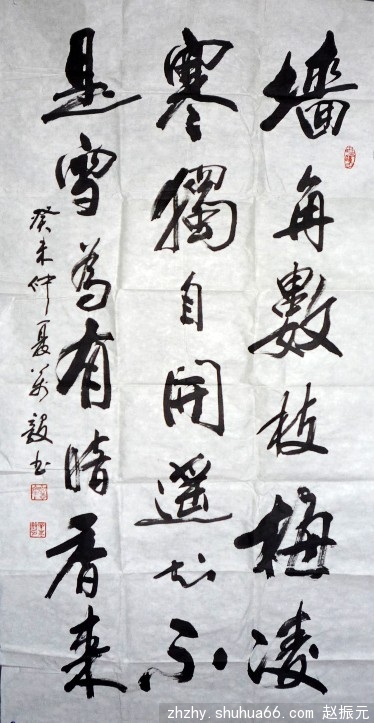 墙角數枝梅凌
寒獨自開遥知不
是雪為有暗香来
癸未仲夏
zhzhy.shuhua66.com 赵振元